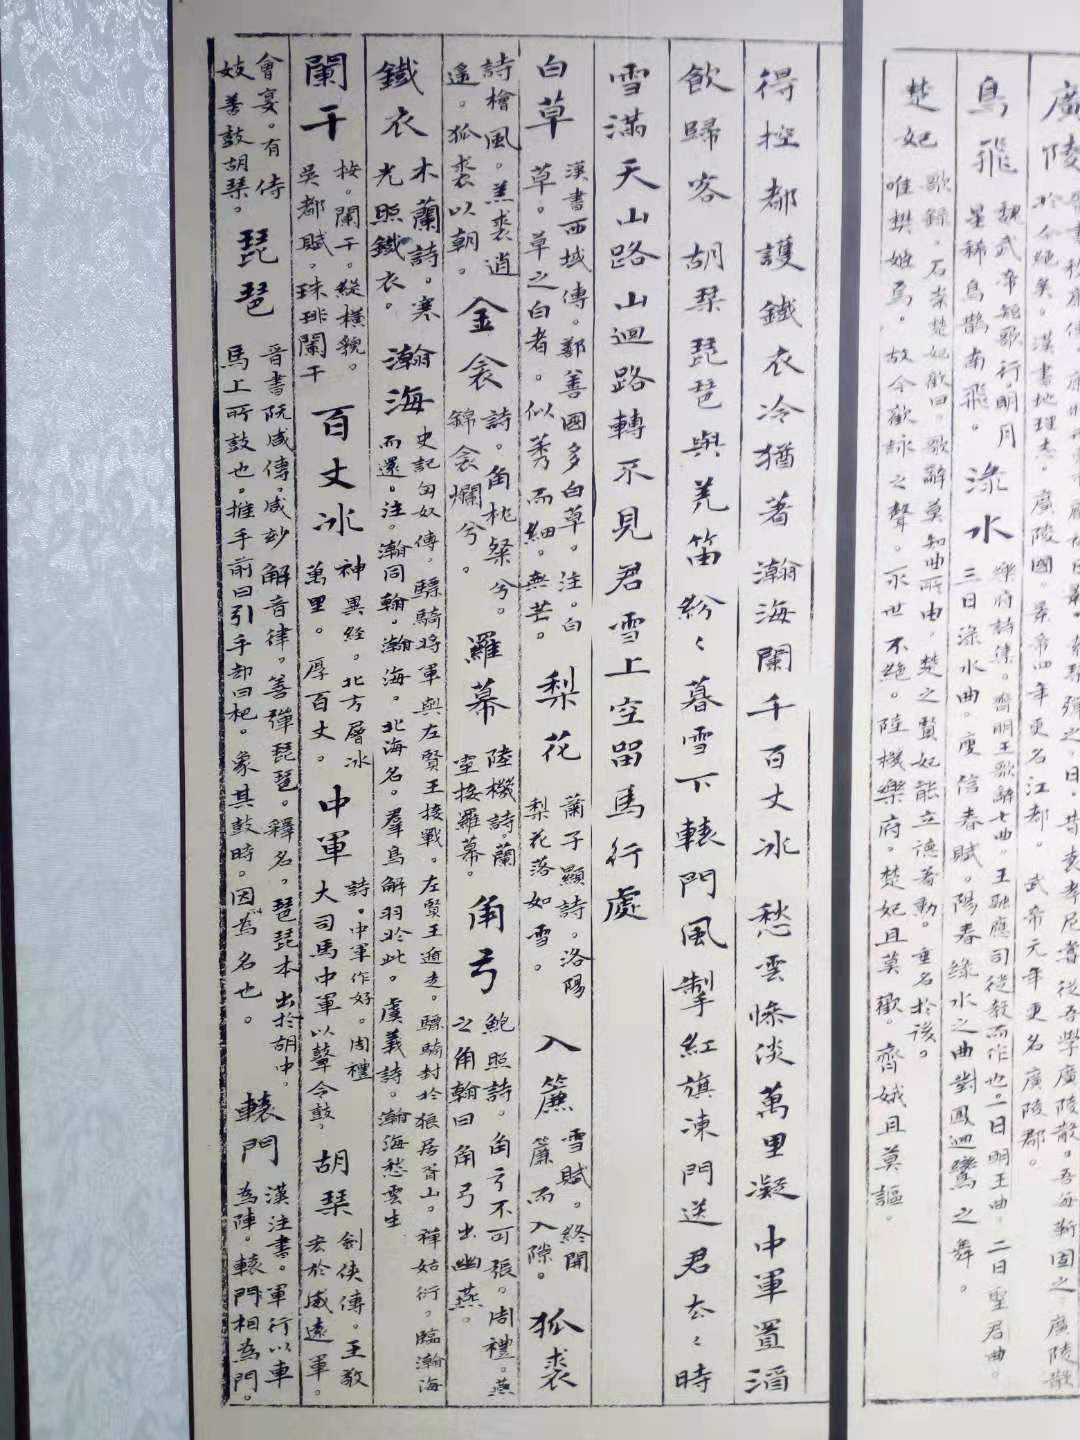 廣陵
於今絕矣。漢書地理志。廣陵國。景帝四年更名江都。武帝元年更名廣陵郡。
烏飛 魏武帝短歌行。明月
星稀烏鵲南飛。
淥水 樂府詩集。齊明王歌辭七曲。王融應司徒教而作也。一曰明王曲。二曰聖君曲。
三曰淥水曲。庾信春賦。陽春綠水之曲對鳳迴鸞之舞。
楚妃 歌錄。石崇楚妃歎曰。歌辭莫知曲所由。楚之賢妃能立德著勳。垂名於後。
唯樊姬焉。故令歎詠之聲。永世不絕。陸機樂府。楚妃且莫歎。齊娥且莫謳。
得控都護鐵衣冷猶著瀚海闌干百丈冰愁雲慘淡萬里凝中軍置酒
飲歸客胡琴琵琶與羌笛紛〻暮雪下轅門風掣紅旗凍門送君去〻時
雪滿天山路山迴路轉不見君雪上空留馬行處
白草 漢書西域傳。鄯善國多白草。注。白
草。草之白者。似莠而細。無芒。
梨花 蕭子顯詩。洛陽
梨花落如雪。
入簾 雪賦。終開
簾而入隙。
狐裘
詩檜風。羔裘逍
遙。狐裘以朝。
金衾 詩。角枕粲兮。
錦衾爛兮。
羅幕 陸機詩。蘭
室接羅幕。
角弓 鮑照詩。角弓不可張。周禮。燕
之角翰曰角弓出幽燕。
鐵衣 木蘭詩。寒
光照鐵衣。
瀚海 史記匈奴傳。驃騎將軍與左賢王接戰。左賢王遁走。驃騎封於狼居胥山。禪姑衍。臨瀚海
而還。注。瀚同翰。瀚海。北海名。羣鳥解羽於此。虞羲詩。瀚海愁雲生
闌干 按。闌干。縱橫貌。
吳都賦。珠琲闌干
百丈冰 神異經。北方層冰
萬里。厚百丈。
中軍 詩。中軍作好。周禮
大司馬中軍以鼙令鼓。
胡琴 劍俠傳。王敬
宏於威遠軍。
會宴。有侍
妓善鼓胡琴。
琵琶 晉書阮咸傳。咸妙解音律。善彈琵琶。釋名。琵琶本出於胡中。
馬上所鼓也。推手前曰引手却曰杷。象其鼓時。因為名也。
轅門 漢注書。軍行以車
為陣。轅門相為門。